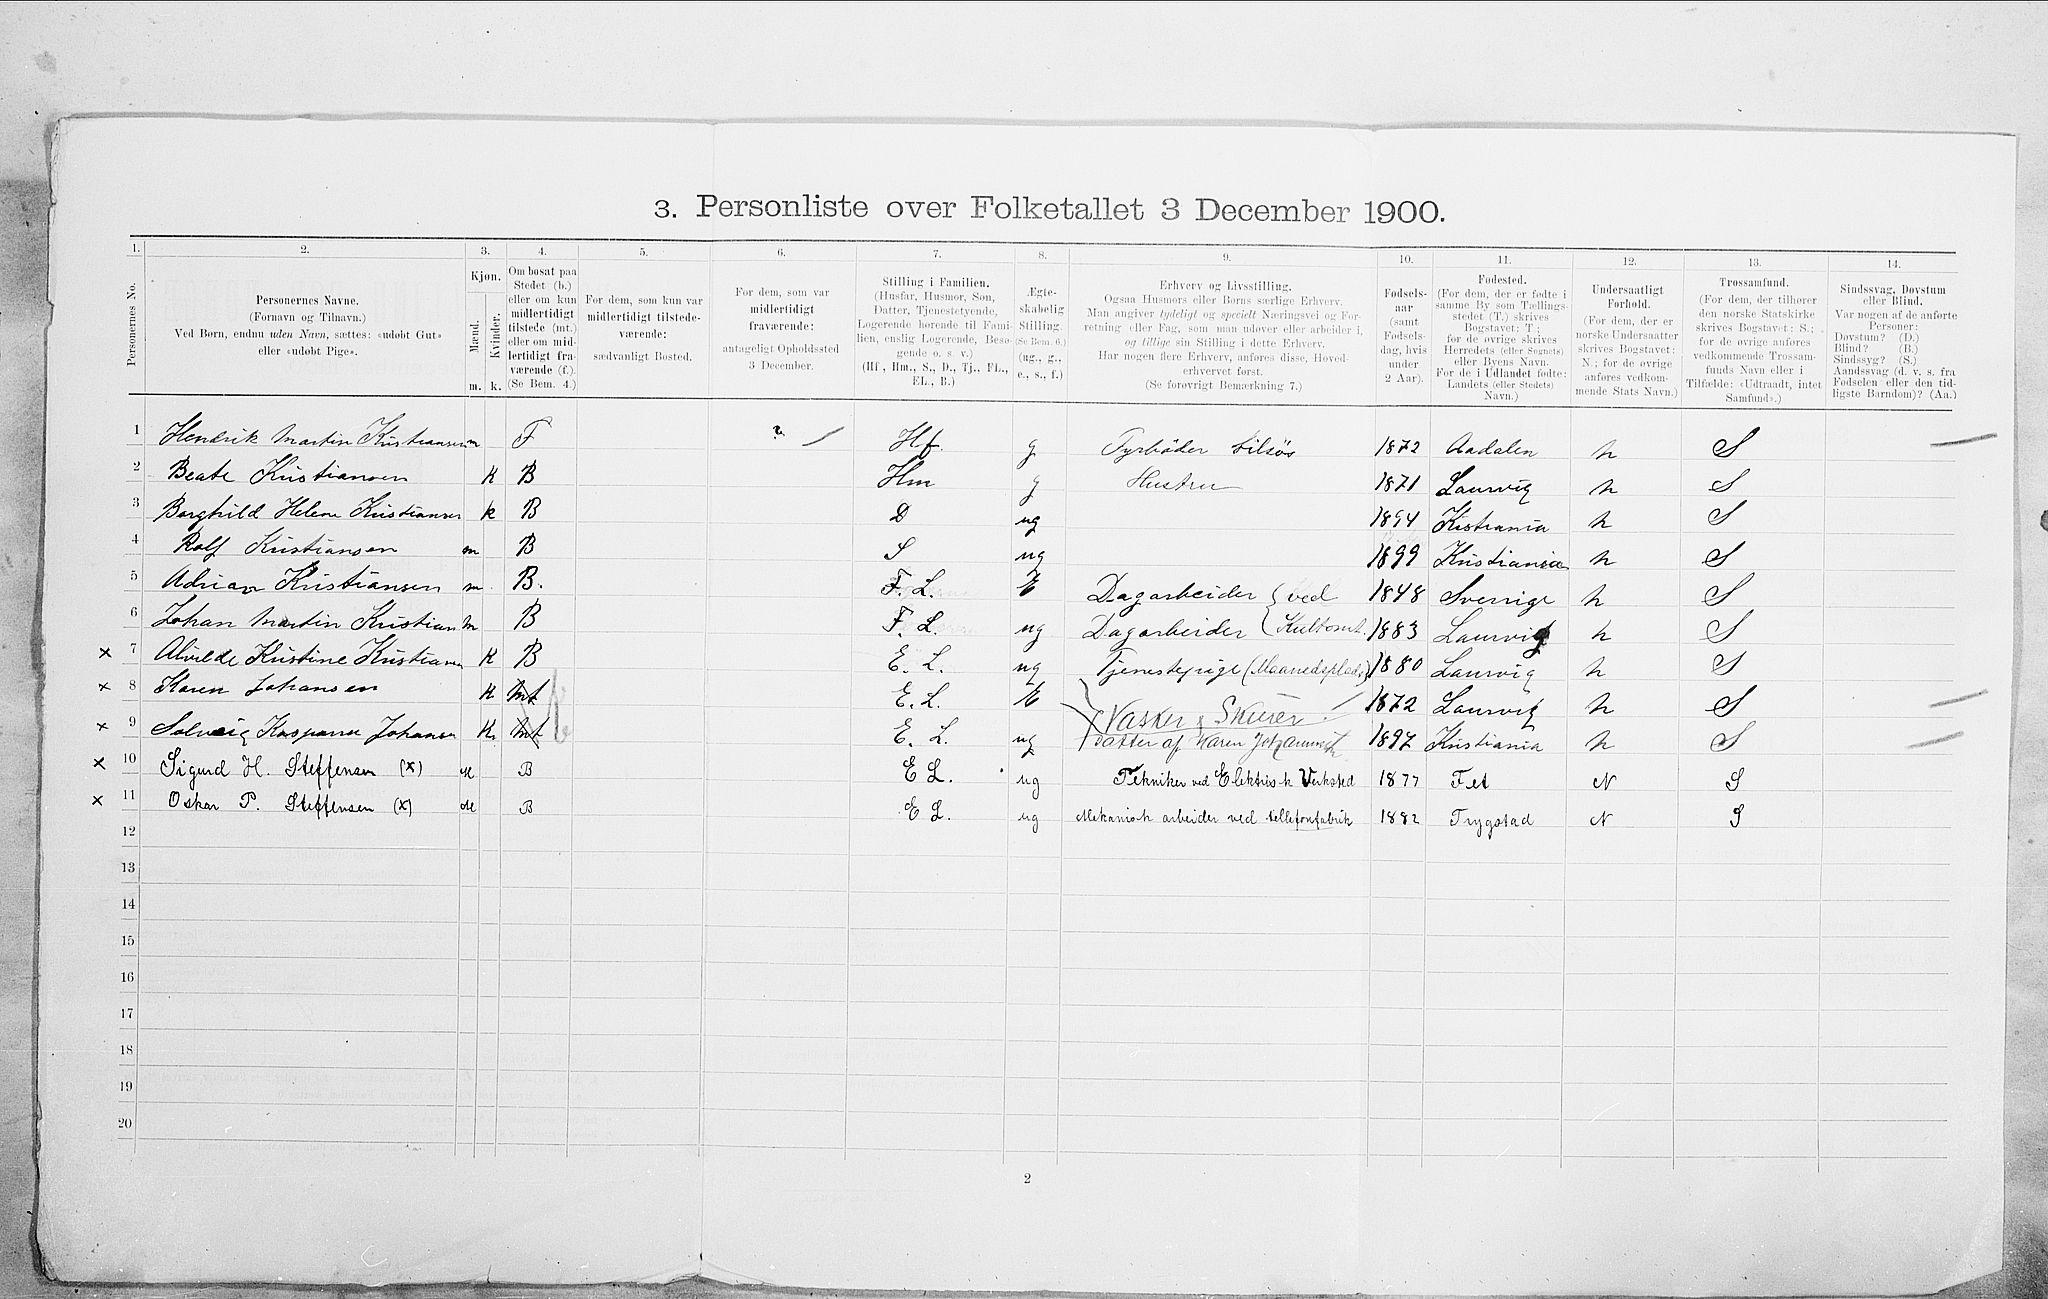 3. Personliste over Folketallet 3 December 1900.
1. 2. 3. 4. 5. 6. 7. 8. 9. 10. 11. 12. 13. 14.
Personernes No.
Personernes Navne.
(Fornavn og Tilnavn.)
Ved Børn, endnu uden Navn, sættes: «udøbt Gut»
eller «udøbt Pige».
Kjøn.
Mænd.
Kvinder.
m. k.
Om bosat paa
Stedet (b.)
eller om kun
midlertidigt
tilstede (mt.)
eller om mid-
lertidigt fra-
værende (f.).
(Se Bem. 4.)
For dem, som kun var
midlertidigt tilstede-
værende:
sædvanligt Bosted.
For dem, som var
midlertidigt
fraværende:
antageligt Opholdssted
3 December.
Stilling i Familien.
(Husfar, Husmor, Søn,
Datter, Tjenestetyende,
Logerende hørende til Fami-
lien, enslig Logerende, Besø-
gende o. s. v.)
(Hf., Hm., S., D., Tj., FL.,
EL., B.)
Ægte-
skabelig
Stilling.
(Se Bem. 6.)
(ug., g.,
e., s., f.)
Erhverv og Livsstilling.
Ogsaa Husmors eller Børns særlige Erhverv.
Man angiver tydeligt og specielt Næringsvei og For-
retning eller Fag, som man udøver eller arbeider i,
og tillige sin Stilling i dette Erhverv.
Har nogen flere Erhverv, anføres disse, Hoved-
erhvervet først.
(Se forøvrigt Bemærkning 7.)
Fødsels-
aar
(samt
Fødsels-
dag, hvis
under
2 Aar).
Fødested.
(For dem, der er fødte i
samme By som Tællings-
stedet (T.) skrives
Bogstavet: T.;
for de øvrige skrives
Herredets (eller Sognets)
eller Byens Navn.
For de i Udlandet fødte:
Landets (eller Stedets)
Navn.)
Undersaatligt
Forhold.
(For dem, der er
norske Undersaatter
skrives Bogstavet:
N.; for de øvrige
anføres vedkom-
mende Stats Navn.)
Trossamfund.
(For dem, der tilhører
den norske Statskirke
skrives Bogstavet: S.;
for de øvrige anføres
vedkommende Trossam-
funds Navn eller i
Tilfælde: «Udtraadt, intet
Samfund».)
Sindssvag, Døvstum
eller Blind.
Var nogen af de anførte
Personer:
Døvstum? (D.)
Blind? (B.)
Sindssyg? (S.)
Aandssvag (d. v. s. fra
Fødselen eller den tid-
ligste Barndom)? (Aa.)
1 Hendrik Martin Kristiansen m F ? Hf. g Fyrbøder tilsøs 1872 Aadalen n S
2 Beate Kristiansen K B Hm g Hustru 1871 Laurvig n S
3 Borghild Helene Kristiansen k B D ug 1894 Kistiania n S
4 Rolf Kristiansen m B S ug 1899 Kristiania n S
5 Adrian Kristiansen m. B. F. L. E Dagarbeider { ved 1848 Sverrige n S
6 Johan Martin Kristian m B F. L. ug Dagarbeider 1883 Laurvig n S
× 7 Alvilde Kristine Kristian K B E. L. ug Tjenestepige (Maanedsplads) 1880 Laurvig n S
× 8 Karen Johansen K mt E. L. E Vasker & Skurer 1872 Laurvig n S
× 9 Solveig Kaspara Johansen K. mt E. L. ug datter af Karen 1897 Kristiania n S
× 10 Sigurd H. Steffensen (×) M B E L. ug Tekniker ved Elektrisk Verksted 1877 Fet N S
× 11 Oskar P. Steffensen (×) M B E L. ug Mekanisk arbeider ved tellefonfabrik 1882 Trygstad N S
12
13
14
15
16
17
18
19
20
2